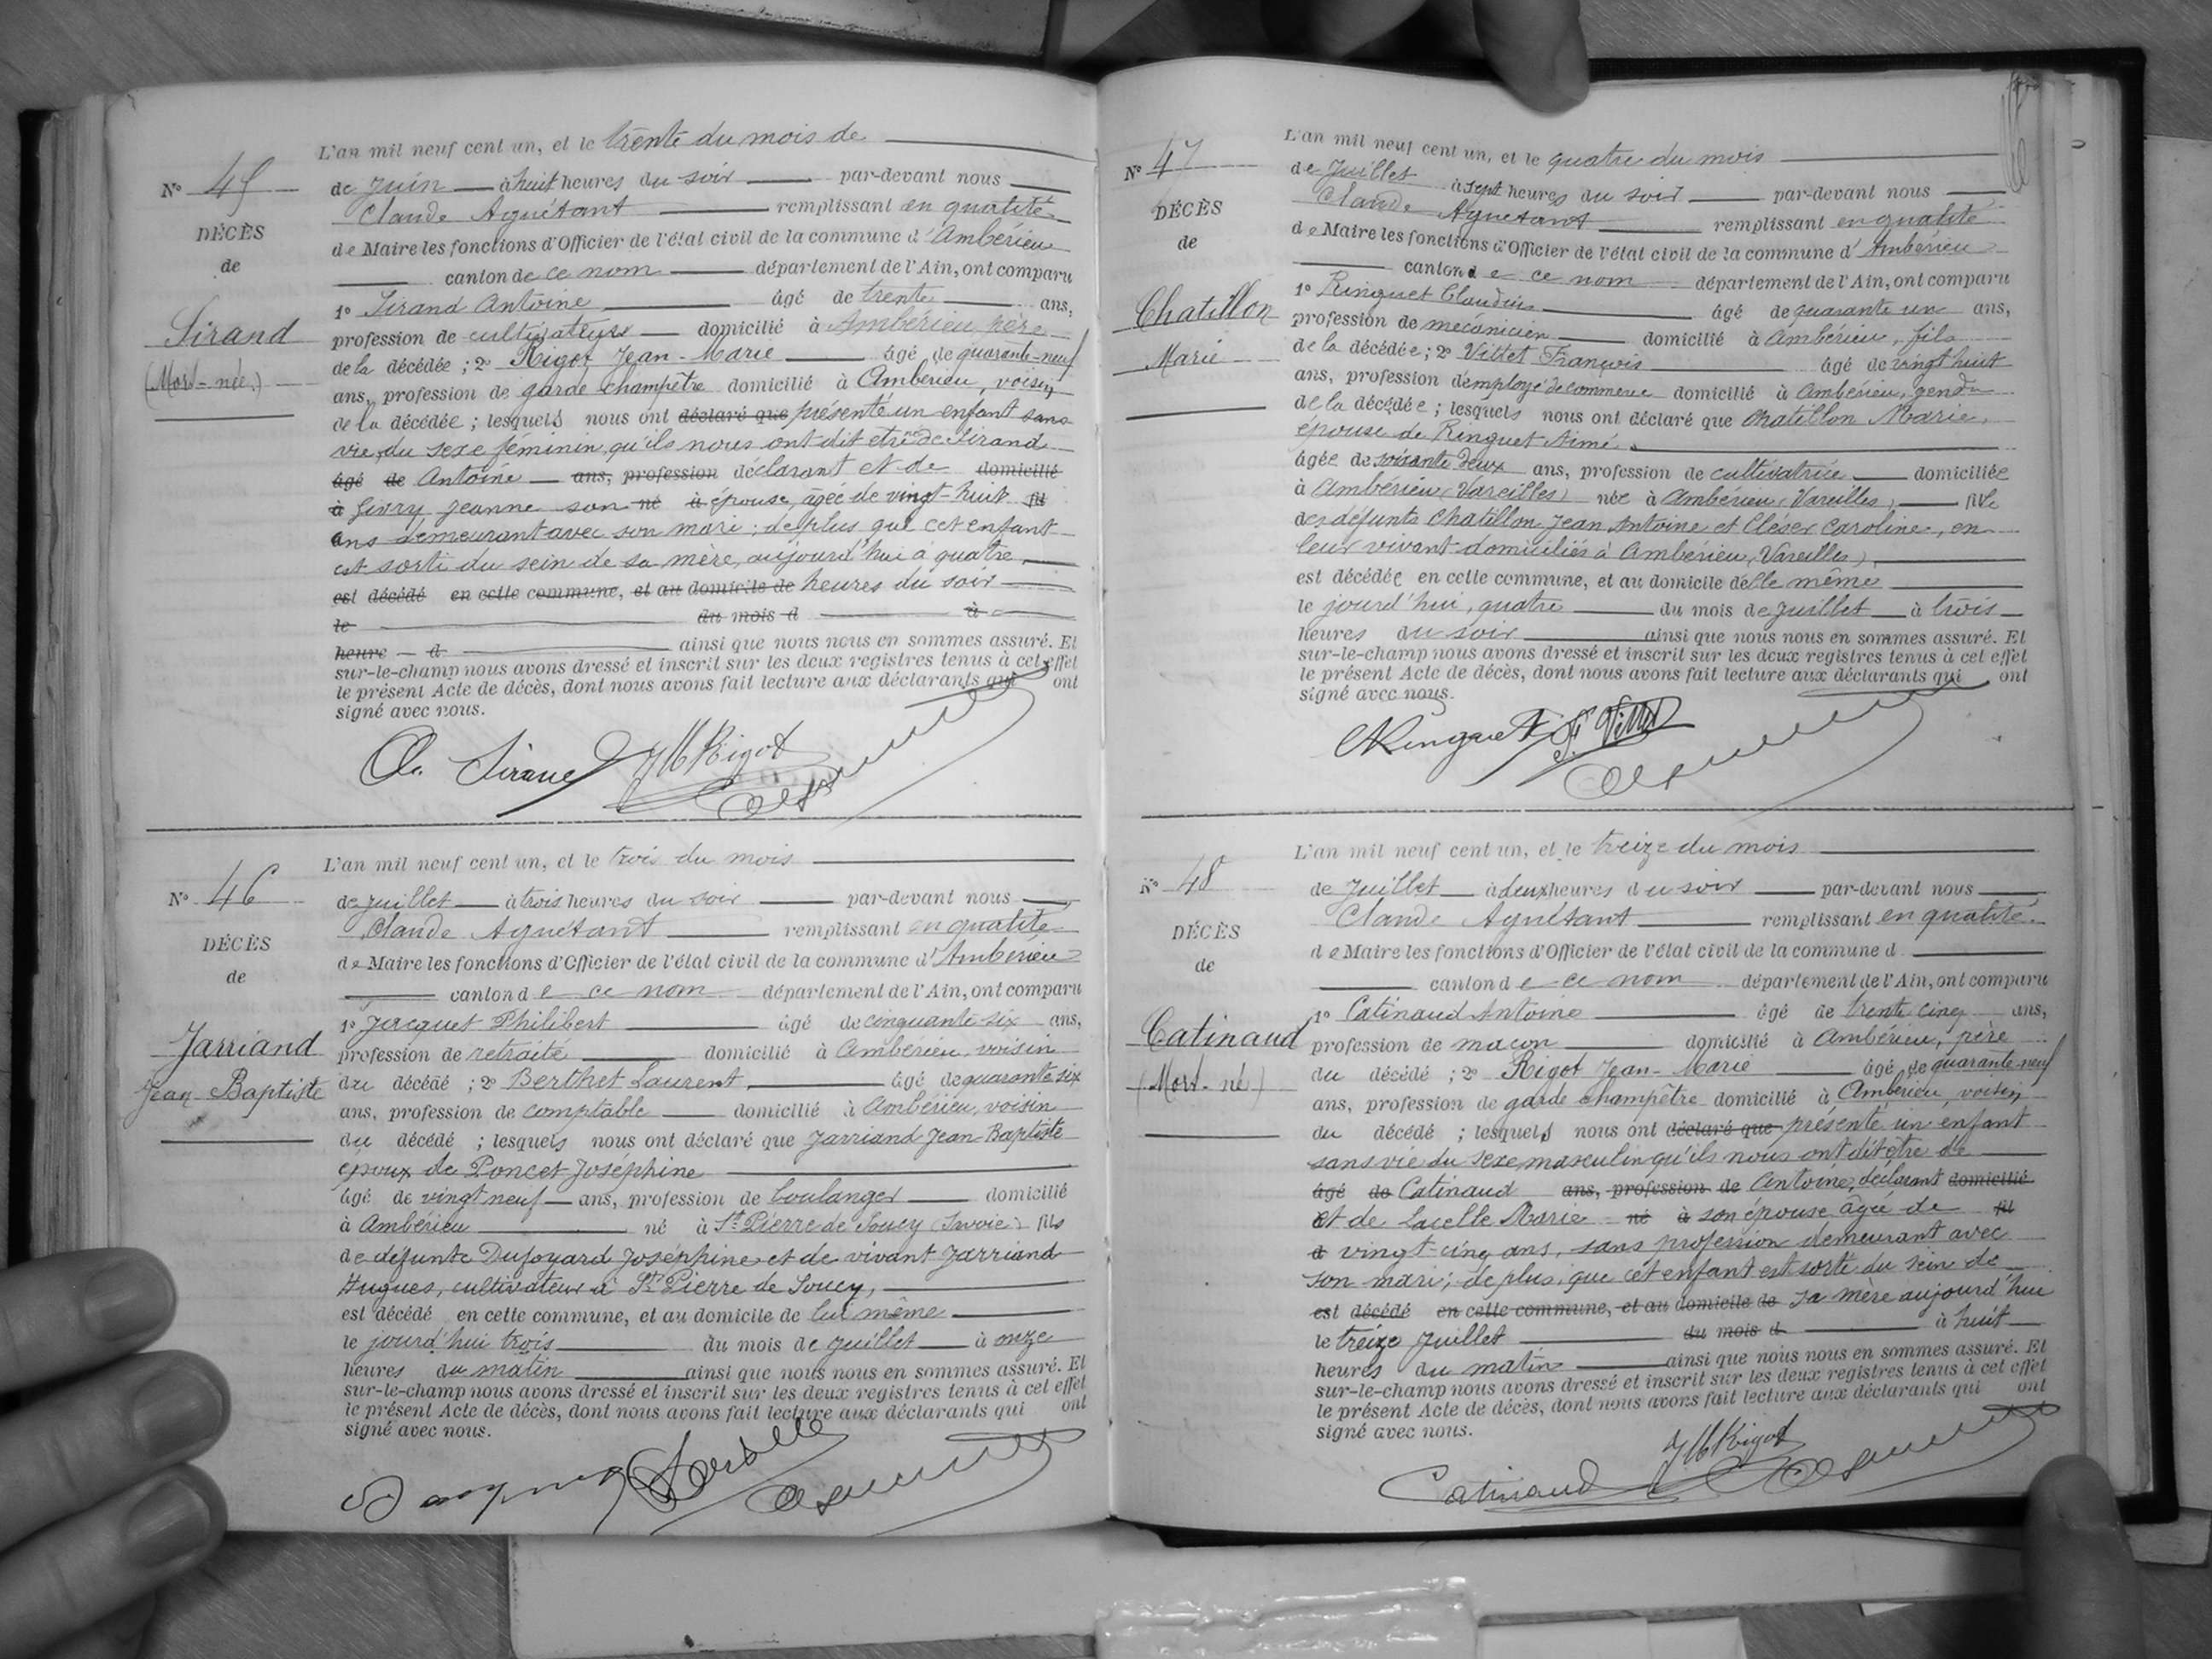 L'an mil neuf cent un, et le trente du mois de
N° 45
de Juin à huit heures du soir par-devant nous
Claude Aguétant remplissant en qualité
DÉCÈS
de Maire les fonctions d'Officier de l'état civil de la commune d'Ambérieu
de
canton de ce nom département de l'Ain, ont comparu
1° Sirand Antoine âgé de trente ans,
Sirand
profession de cultivateur domicilié à Ambérieu, père
(Mort-née)
de la décédée ; 2° Rigot Jean-Marie âgé de quarante-neuf
ans, profession de garde champêtre domicilié à Ambérieu, voisin
de la décédée ; lesquels nous ont déclaré que présenté un enfant sans
vie, du sexe féminin, qu'ils nous ont dit être née de Sirand
âgé de Antoine ans, profession déclarant et de domicilié
à Givry Jeanne son né à épouse, âgée de vingt-huit fil
ans demeurant avec son mari ; de plus, que cet enfant
est sorti du sein de sa mère, aujourd'hui à quatre
est décédé en cette commune, et au domicile de heures du soir
le du mois d à
heure d ainsi que nous nous en sommes assuré. Et
sur-le-champ nous avons dressé et inscrit sur les deux registres tenus à cet effet
le présent Acte de décès, dont nous avons fait lecture aux déclarants qui ont
signé avec nous.
A. Sirand JM Rigot
L'an mil neuf cent un, et le trois du mois
N° 46
de Juillet à trois heures du soir par-devant nous
Claude Aguétant remplissant en qualité
DÉCÈS
de Maire les fonctions d'Officier de l'état civil de la commune d'Ambérieu
de
canton de ce nom département de l'Ain, ont comparu
1° Jacquet Philibert âgé de cinquante six ans,
Jarriand
profession de retraité domicilié à Ambérieu, voisin
Jean-Baptiste
du décédé ; 2° Berthet Laurent, âgé de quarante six
ans, profession de comptable domicilié à Ambérieu, voisin
du décédé ; lesquels nous ont déclaré que Jarriand Jean-Baptiste
époux de Poncet Joséphine
âgé de vingt neuf ans, profession de boulanger domicilié
à Ambérieu né à St Pierre de Soucy (Savoie) fils
de défunte Dufoyard Joséphine et de vivant Jarriand
Hugues, cultivateur à St Pierre de Soucy,
est décédé en cette commune, et au domicile de lui même
le jourd'hui trois du mois de Juillet à onze
heures du matin ainsi que nous nous en sommes assuré. Et
sur-le-champ nous avons dressé et inscrit sur les deux registres tenus à cet effet
le présent Acte de décès, dont nous avons fait lecture aux déclarants qui ont
signé avec nous.
L'an mil neuf cent un, et le quatre du mois
N° 47
de Juillet à sept heures du soir par-devant nous
Claude Aguétant remplissant en qualité
DÉCÈS
de Maire les fonctions d'Officier de l'état civil de la commune d'Ambérieu
de
canton de ce nom département de l'Ain, ont comparu
1° Ringuet Claudius âgé de quarante un ans,
Chatillon
profession de mécanicien domicilié à Ambérieu, fils
Marie
de la décédée ; 2° Villet François âgé de vingt huit
ans, profession d'employé de commerce domicilié à Ambérieu, gendre
de la décédée ; lesquels nous ont déclaré que Chatillon Marie,
épouse de Ringuet Aimé
âgée de soixante deux ans, profession de cultivatrice domiciliée
à Ambérieu (Vareilles) née à Ambérieu (Vareilles), fille
des défunts Chatillon Jean Antoine et Cléser Caroline, en
leur vivant domiciliés à Ambérieu, (Vareilles),
est décédée en cette commune, et au domicile d'elle même
le jourd'hui, quatre du mois de Juillet à trois
heures du soir ainsi que nous nous en sommes assuré. Et
sur-le-champ nous avons dressé et inscrit sur les deux registres tenus à cet effet
le présent Acte de décès, dont nous avons fait lecture aux déclarants qui ont
signé avec nous.
CRinguet F. Villet
L'an mil neuf cent un, et le treize du mois
N° 48
de Juillet à deux heures du soir par-devant nous
Claude Aguétant remplissant en qualité
DÉCÈS
de Maire les fonctions d'Officier de l'état civil de la commune d
de
canton de ce nom département de l'Ain, ont comparu
1° Catinaud Antoine âgé de trente cinq ans,
Catinaud
profession de maçon domicilié à Ambérieu, père
(Mort-né)
du décédé ; 2° Rigot Jean-Marie âgé de quarante-neuf
ans, profession de garde champêtre domicilié à Ambérieu, voisin
du décédé ; lesquels nous ont déclaré que présenté un enfant
sans vie du sexe masculin qu'ils nous ont dit être de
âgé de Catinaud ans, profession de Antoine, déclarant domicilié
et de Lacelle Marie né à son épouse âgée de fil
d vingt-cinq ans, sans profession demeurant avec
son mari ; de plus, que cet enfant est sorti du sein de
est décédé en cette commune, et au domicile de sa mère aujourd'hui
le treize Juillet du mois d à huit
heures du matin ainsi que nous nous en sommes assuré. Et
sur-le-champ nous avons dressé et inscrit sur les deux registres tenus à cet effet
le présent Acte de décès, dont nous avons fait lecture aux déclarants qui ont
signé avec nous.
JM Rigot
Catinaud